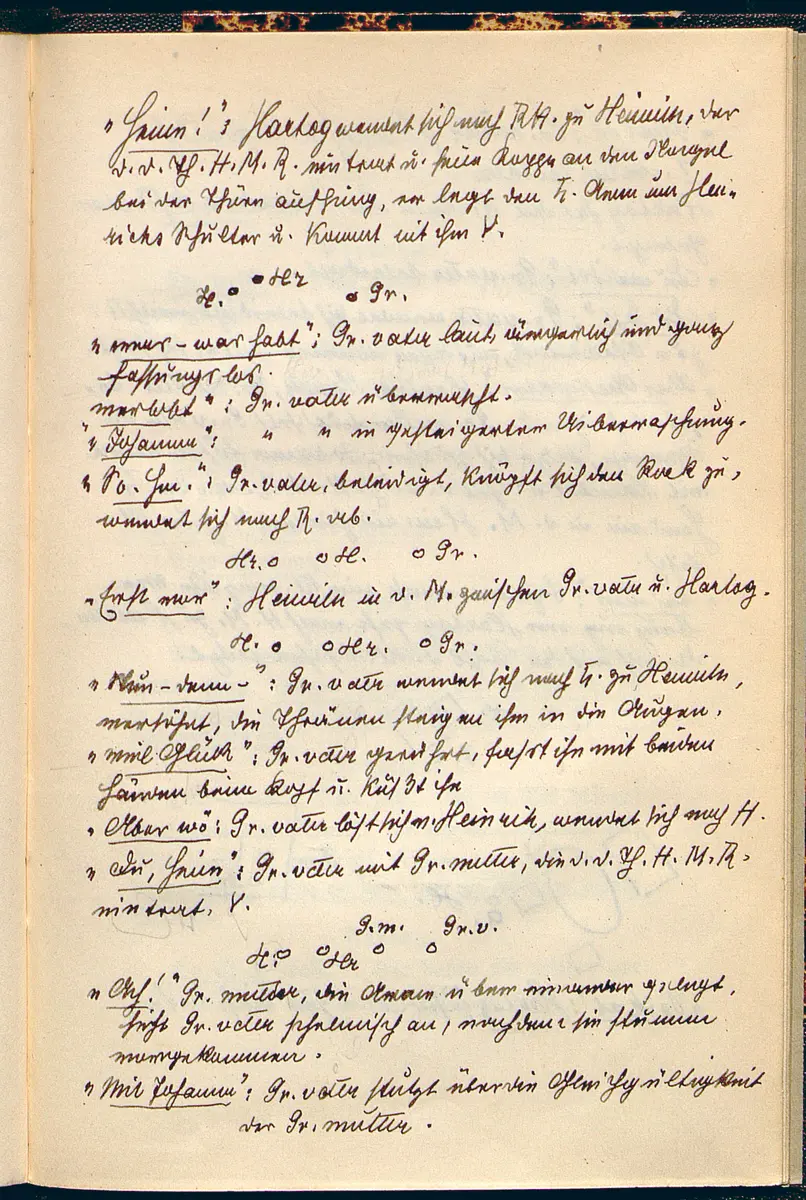 "Heinn!": Hartog wendet sich nach RH. zu Heinrich, der
d. d. Th. H. M. R. eintrat u. seine Kappe an den Nagel
bei der Thüre aufhing, er legt den L. Arm um Hein-
richs Schulter u. kommt mit ihm V.
H. Hr Gr.
"was - was habt": Gr. vater laut, ärgerlich und ganz
fassungslos.
verlobt": Gr. vater überrascht.
"Johanna": " " in gesteigerter Uiberraschung.
"So. hm.": Gr. vater, beleidigt, knöpft sich den Rock zu,
wendet sich nach R. ab.
Hr. H. Gr.
"Erst vor": Heinrich in d. M. zwischen Gr. vater u. Hartog.
H. Hr. Gr.
"Nun - denn -": Gr. vater wendet sich nach L. zu Heinrich,
versöhnt, die Thränen steigen ihm in die Augen.
"viel Glück": Gr. vater gerührt, fasst ihn mit beiden
Händen beim Kopf u. küsst ihn
"Aber wo: Gr. vater löst sich v. Heinrich, wendet sich nach H.
"Du, Heinn": Gr. vater mit Gr. mutter, die d. d. Th. H. M. R.
eintrat, V.
G. m. Gr. v.
H. Hr
"Ach!" Gr. mutter, die Arme über einander gelegt,
sieht Gr. vater schelmisch an, nachdem sie stumm
vorgekommen.
"Mit Johanna": Gr. vater stutzt über die Gleichgültigkeit
der Gr. mutter.